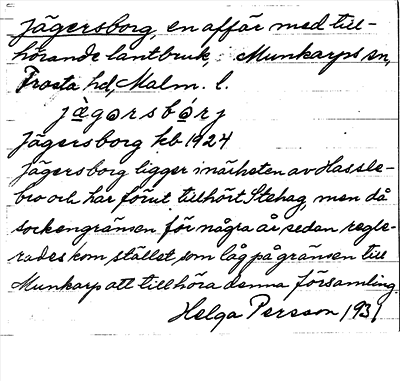 Jägersborg, en affär med till-
hörande lantbruk, Munkarps sn,
Frosta hd, Malm. l.
jàgərsbórj
Jägersborg kb 1924
Jägersborg ligger i närheten av Hassle-
bro och har förut tillhört Stehag, men då
sockengränsen för några år sedan regle-
rades kom stället, som låg på gränsen till
Munkarp att tillhöra denna församling.
Helga Persson 1931